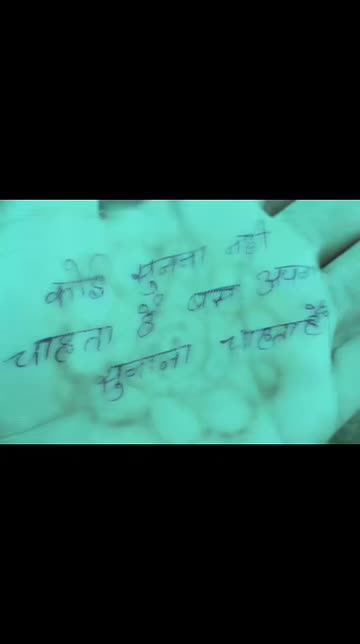 कोई सुनना नही
चाहता हैं बस अपना
सुनाना चाहता हैं